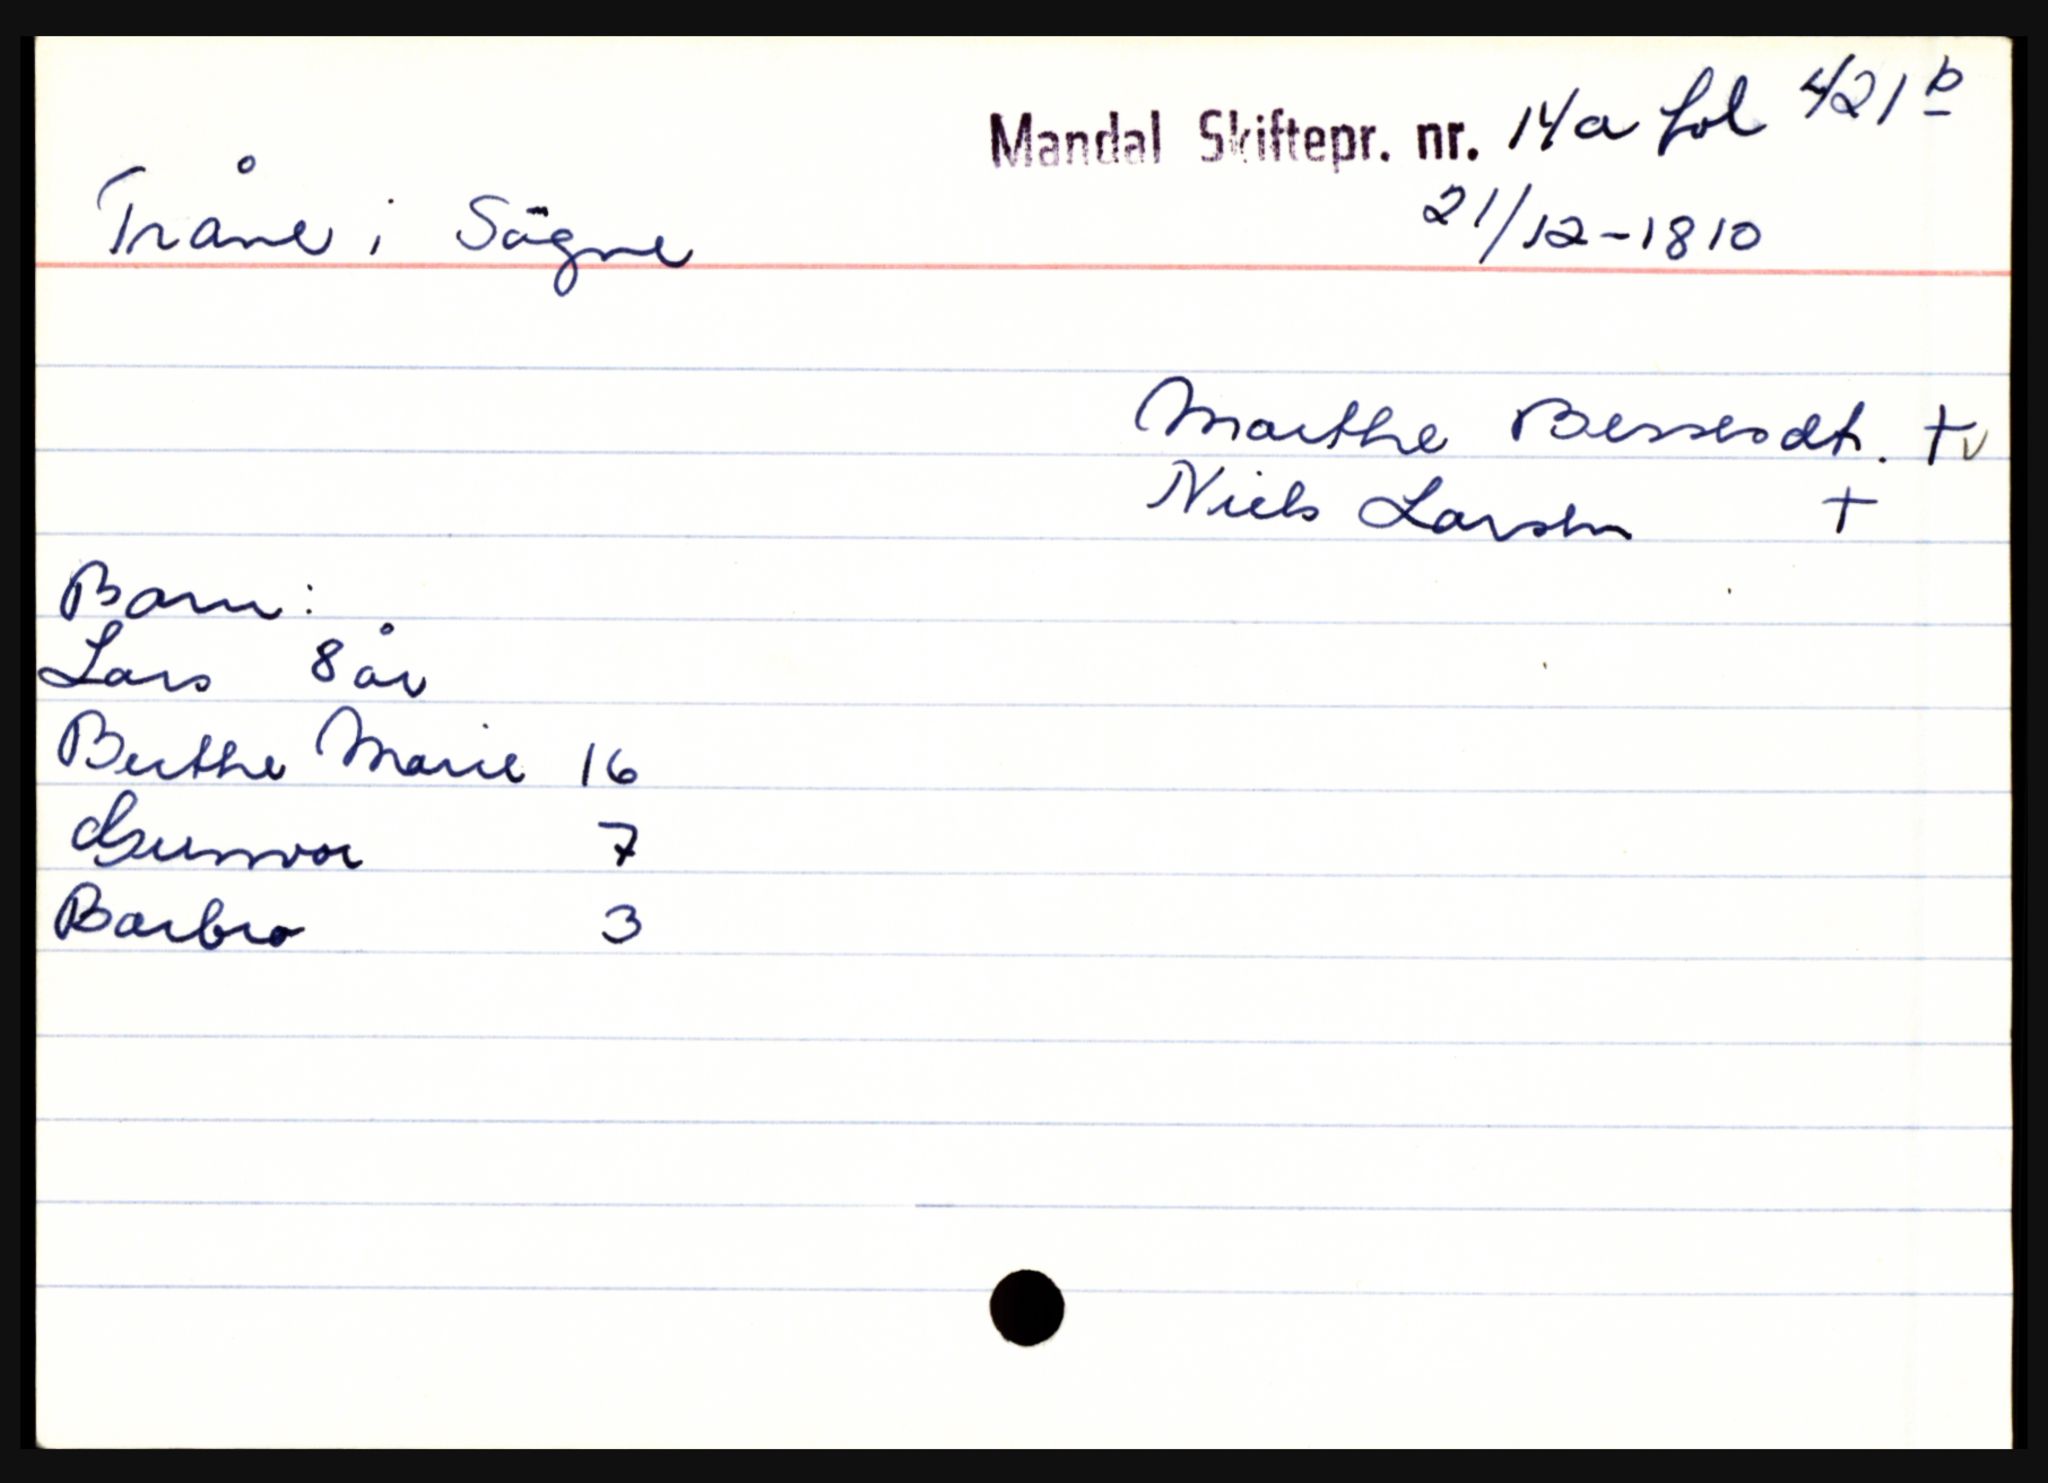 Mandal Skiftepr. nr. 14a fol 421b
Tråne i Sögne
21/12-1810
Marthe Bessesdtr. + v
Niels Larsen +
Barn:
Lars 8 år
Berthe Marie 16
Gunvor 7
Barbro 3